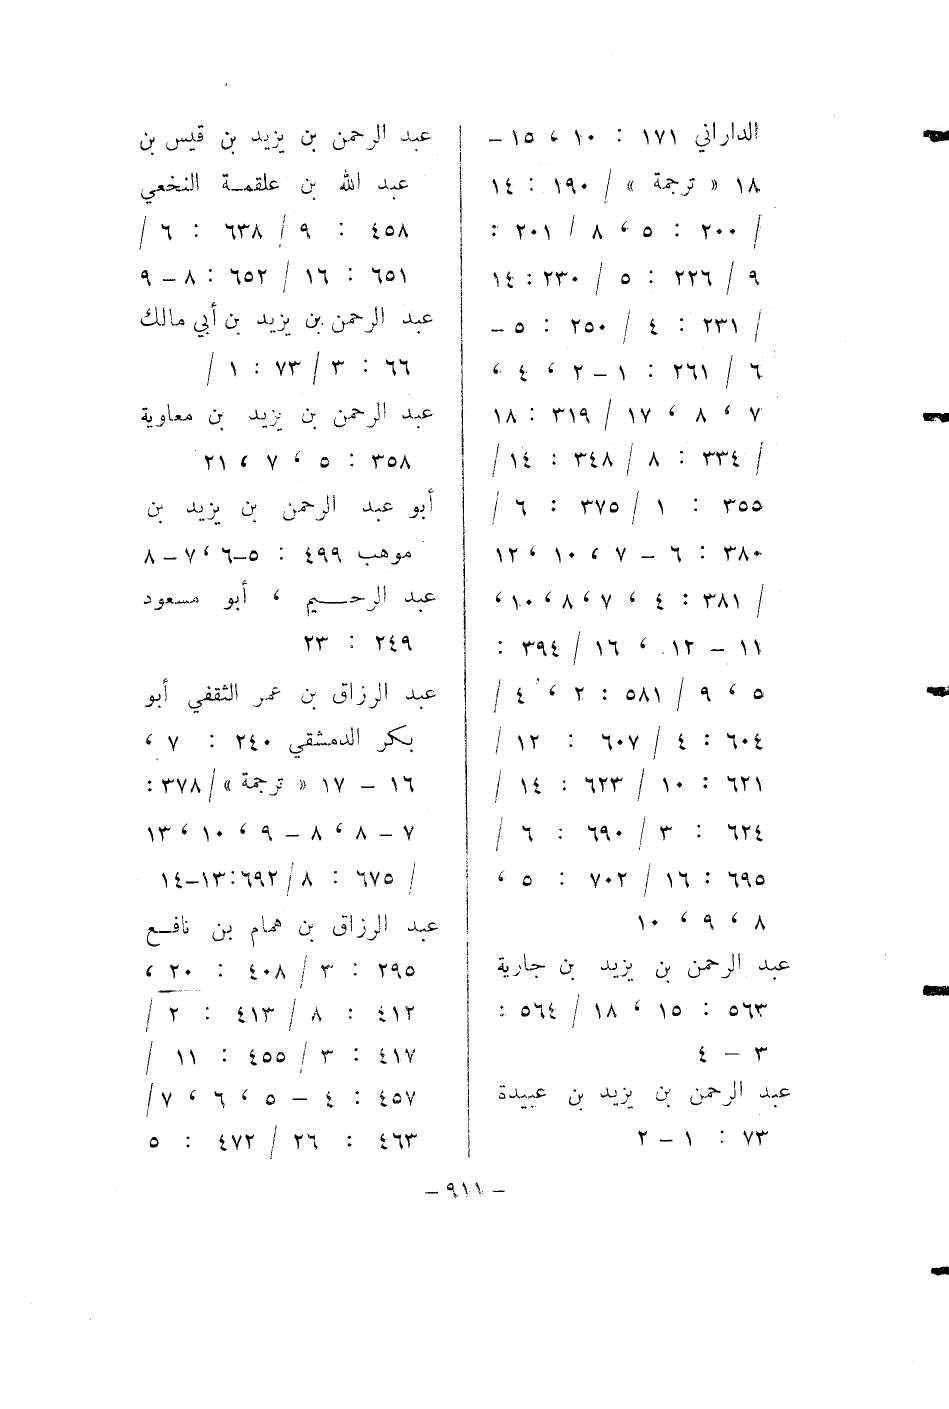 الداراني ١٧١ : ١٠ ، ١٥ –
١٨ « ترجمة » / ١٩٠ : ١٤
/ ٢٠٠ : ٥ ، ٨ / ٢٠١ :
٩ / ٢٢٦ : ٥ / ٢٣٠ : ١٤
/ ٢٣١ : ٤ / ٢٥٠ : ٥ –
٦ / ٢٦١ : ١ – ٢ ، ٤ ،
٧ ، ٨ ، ١٧ / ٣١٩ : ١٨
/ ٣٣٤ : ٨ / ٣٤٨ : ١٤ /
٣٥٥ : ١ / ٣٧٥ : ٦ /
٣٨٠ : ٦ – ٧ ، ١٠ ، ١٢
/ ٣٨١ : ٤ ، ٧ ، ٨ ، ١٠ ،
١١ – ١٢ ، ١٦ / ٣٩٤ :
٥ ، ٩ / ٥٨١ : ٢ ، ٤ /
٦٠٤ : ٤ / ٦٠٧ : ١٢ /
٦٢١ : ١٠ / ٦٢٣ : ١٤ /
٦٢٤ : ٣ / ٦٩٠ : ٦ /
٦٩٥ : ١٦ / ٧٠٢ : ٥ ،
٨ ، ٩ ، ١٠
عبد الرحمن بن يزيد بن جارية
٥٦٣ : ١٥ ، ١٨ / ٥٦٤ :
٣ – ٤
عبد الرحمن بن يزيد بن عبيدة
٧٣ : ١ – ٢
عبد الرحمن بن يزيد بن قيس بن
عبد الله بن علقمة النخعي
٤٥٨ : ٩ / ٦٣٨ : ٦ /
٦٥١ : ١٦ / ٦٥٢ : ٨ – ٩
عبد الرحمن بن يزيد بن أبي مالك
٦٦ : ٣ / ٧٣ : ١ /
عبد الرحمن بن يزيد بن معاوية
٣٥٨ : ٥ ، ٧ ، ٢١
أبو عبد الرحمن بن يزيد بن
موهب ٤٩٩ : ٥–٦ ، ٧ – ٨
عبد الرحيم ، أبو مسعود
٢٤٩ : ٢٣
عبد الرزاق بن عمر الثقفي أبو
بكر الدمشقي ٢٤٠ : ٧ ،
١٦ – ١٧ « ترجمة » / ٣٧٨ :
٧ – ٨ ، ٨ – ٩ ، ١٠ ، ١٣
/ ٦٧٥ : ٨ / ٦٩٢ : ١٣–١٤
عبد الرزاق بن همام بن نافع
٢٩٥ : ٣ / ٤٠٨ : ٢٠ ،
٤١٢ : ٨ / ٤١٣ : ٢ /
٤١٧ : ٣ / ٤٥٥ : ١١ /
٤٥٧ : ٤ – ٥ ، ٦ ، ٧ /
٤٦٣ : ٢٦ / ٤٧٢ : ٥
– ٩١١ –